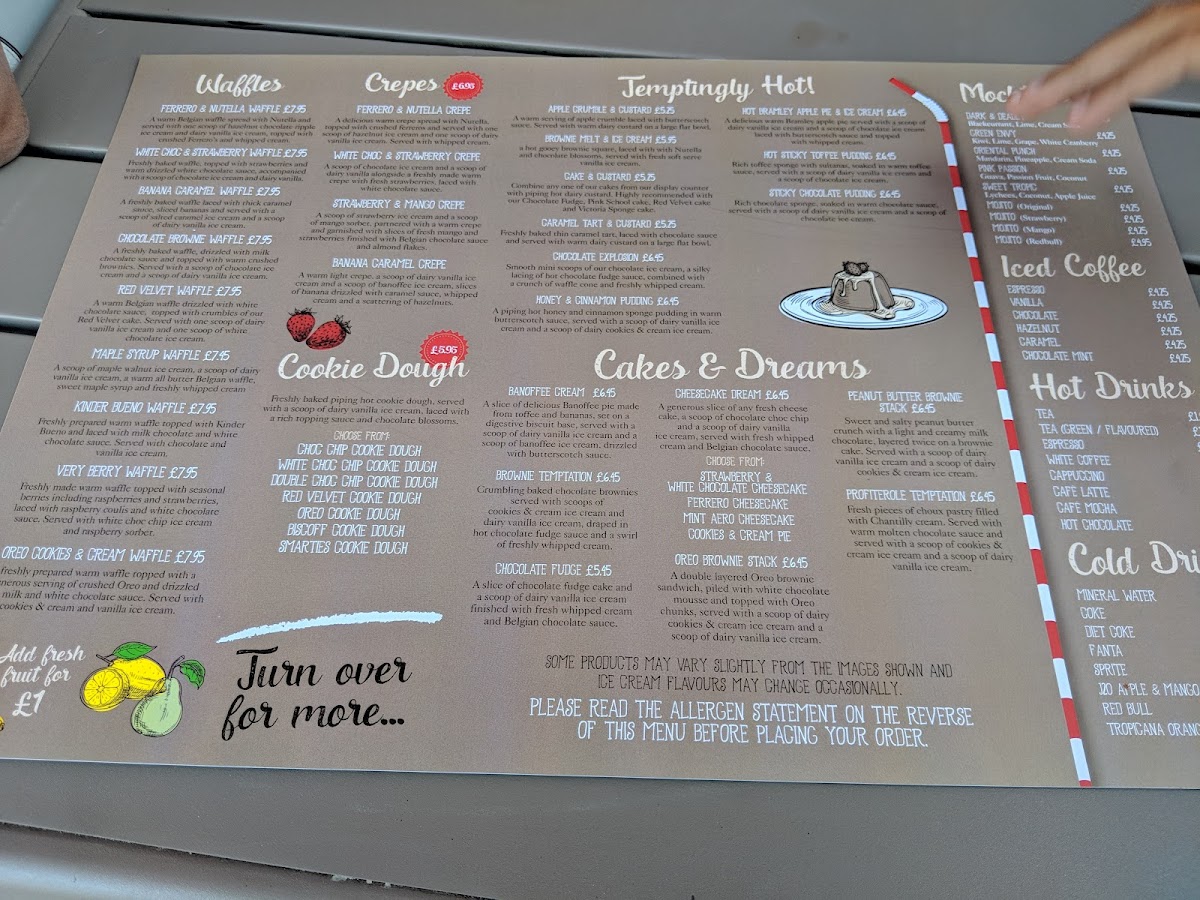 Waffles
FERRERO & NUTELLA WAFFLE £7.95
A warm Belgian waffle spread with Nutella and
served with one scoop of hazelnut chocolate ripple
ice cream and dairy vanilla ice cream, topped with
crushed Ferrero's and whipped cream.
WHITE CHOC & STRAWBERRY WAFFLE £7.95
Freshly baked waffle, topped with strawberries and
warm drizzled white chocolate sauce, accompanied
with a scoop of chocolate ice cream and dairy vanilla.
BANANA CARAMEL WAFFLE £7.95
A freshly baked waffle laced with thick caramel
sauce, sliced bananas and served with a
scoop of salted caramel ice cream and a scoop
of dairy vanilla ice cream.
CHOCOLATE BROWNIE WAFFLE £7.95
A freshly baked waffle, drizzled with milk
chocolate sauce and topped with warm crushed
brownies. Served with a scoop of chocolate ice
cream and a scoop of dairy vanilla ice cream.
RED VELVET WAFFLE £7.95
A warm Belgian waffle drizzled with white
chocolate sauce, topped with crumbles of our
Red Velvet cake. Served with one scoop of dairy
vanilla ice cream and one scoop of white
chocolate ice cream.
MAPLE SYRUP WAFFLE £7.45
A scoop of maple walnut ice cream, a scoop of dairy
vanilla ice cream, a warm all butter Belgian waffle,
sweet maple syrup and freshly whipped cream
KINDER BUENO WAFFLE £7.95
Freshly prepared warm waffle topped with Kinder
Bueno and laced with milk chocolate and white
chocolate sauce. Served with chocolate and
vanilla ice cream.
VERY BERRY WAFFLE £7.95
Freshly made warm waffle topped with seasonal
berries including raspberries and strawberries,
laced with raspberry coulis and white chocolate
sauce. Served with white choc chip ice cream
and raspberry sorbet.
OREO COOKIES & CREAM WAFFLE £7.95
freshly prepared warm waffle topped with a
nerous serving of crushed Oreo and drizzled
milk and white chocolate sauce. Served with
cookies & cream and vanilla ice cream.
Add fresh
fruit for
£1
Crepes £6.95
FERRERO & NUTELLA CREPE
A delicious warm crepe spread with Nutella,
topped with crushed ferreros and served with one
scoop of hazelnut ice cream and one scoop of dairy
vanilla ice cream.
WHITE CHOC & STRAWBERRY CREPE
A scoop of chocolate ice cream and a scoop of
dairy vanilla alongside a freshly made warm
crepe with fresh strawberries, laced with
white chocolate sauce.
STRAWBERRY & MANGO CREPE
A scoop of strawberry ice cream and a scoop
of mango sorbet, partnered with a warm crepe
and garnished with slices of fresh mango and
strawberries finished with Belgian chocolate sauce
and almond flakes.
BANANA CARAMEL CREPE
A warm light crepe, a scoop of dairy vanilla ice
cream and a scoop of banoffee ice cream, slices
of banana drizzled with caramel sauce, whipped
cream and a scattering of hazelnuts.
Cookie Dough £5.95
Freshly baked piping hot cookie dough, served
with a scoop of dairy vanilla ice cream, laced with
a rich topping sauce and chocolate blossoms.
CHOOSE FROM:
CHOC CHIP COOKIE DOUGH
WHITE CHOC CHIP COOKIE DOUGH
DOUBLE CHOC CHIP COOKIE DOUGH
RED VELVET COOKIE DOUGH
OREO COOKIE DOUGH
BISCOFF COOKIE DOUGH
SMARTIES COOKIE DOUGH
Turn over
for more...
Temptingly Hot!
APPLE CRUMBLE & CUSTARD £5.25
A warm serving of apple crumble laced with butterscotch
sauce. Served with warm dairy custard on a large flat bowl.
BROWNIE MELT & ICE CREAM £5.95
a hot gooey brownie square, laced with with Nutella
and chocolate blossoms, served with fresh soft serve
vanilla ice cream.
CAKE & CUSTARD £5.25
Combine any one of our cakes from our display counter
with piping hot dairy custard. Highly recommended with
our Chocolate Fudge, Pink School cake, Red Velvet cake
and Victoria Sponge cake.
CARAMEL TART & CUSTARD £5.25
Freshly baked thin caramel tart, laced with chocolate sauce
and served with warm dairy custard on a large flat bowl.
CHOCOLATE EXPLOSION £6.45
Smooth mini scoops of our chocolate ice cream, a silky
lacing of hot chocolate fudge sauce, combined with
a crunch of waffle cone and freshly whipped cream.
HONEY & CINNAMON PUDDING £6.45
A piping hot honey and cinnamon sponge pudding in warm
butterscotch sauce, served with a scoop of dairy vanilla ice
cream and a scoop of dairy cookies & cream ice cream.
HOT BRAMLEY APPLE PIE & ICE CREAM £6.45
A delicious warm Bramley apple pie served with a scoop of
dairy vanilla ice cream and a scoop of chocolate ice cream,
laced with butterscotch sauce and topped
with whipped cream.
HOT STICKY TOFFEE PUDDING £6.45
Rich toffee sponge with sultanas, soaked in warm toffee
sauce, served with a scoop of dairy vanilla ice cream and a
scoop of chocolate ice cream.
STICKY CHOCOLATE PUDDING £6.45
Rich chocolate sponge, soaked in warm chocolate sauce,
served with a scoop of dairy vanilla ice cream and a scoop of
chocolate ice cream.
Cakes & Dreams
BANOFFEE CREAM £6.45
A slice of delicious Banoffee pie made
from toffee and bananas, set on a
digestive biscuit base, served with a
scoop of dairy vanilla ice cream and a
scoop of banoffee ice cream, drizzled
with butterscotch sauce.
BROWNIE TEMPTATION £6.45
Crumbling baked chocolate brownies
served with scoops of
cookies & cream ice cream and
dairy vanilla ice cream, draped in
hot chocolate fudge sauce and a swirl
of freshly whipped cream.
CHOCOLATE FUDGE £5.45
A slice of chocolate fudge cake and
a scoop of dairy vanilla ice cream
finished with fresh whipped cream
and Belgian chocolate sauce.
CHEESECAKE DREAM £6.45
A generous slice of any fresh cheese
cake, a scoop of chocolate choc chip
and a scoop of dairy vanilla
ice cream, served with fresh whipped
cream and Belgian chocolate.
CHOOSE FROM:
STRAWBERRY &
WHITE CHOCOLATE CHEESECAKE
FERRERO CHEESECAKE
MINT AERO CHEESECAKE
COOKIES & CREAM PIE
OREO BROWNIE STACK £6.45
A double layered Oreo brownie
sandwich, piled with white chocolate
mousse and topped with Oreo
chunks, served with a scoop of dairy
cookies & cream ice cream and a
scoop of dairy vanilla ice cream.
PEANUT BUTTER BROWNIE
STACK £6.45
Sweet and salty peanut butter
crunch with a light and creamy milk
chocolate, layered twice on a brownie
cake. Served with a scoop of dairy
vanilla ice cream and a scoop of dairy
cookies & cream ice cream.
PROFITEROLE TEMPTATION £6.45
Fresh pieces of choux pastry filled
with Chantilly cream. Served with
warm molten chocolate sauce and
served with a scoop of cookies &
cream ice cream and a scoop of dairy
vanilla ice cream.
SOME PRODUCTS MAY VARY SLIGHTLY FROM THE IMAGES SHOWN AND
ICE CREAM FLAVOURS MAY CHANGE OCCASIONALLY.
PLEASE READ THE ALLERGEN STATEMENT ON THE REVERSE
OF THIS MENU BEFORE PLACING YOUR ORDER.
Mock
DARK &
Blackcurrant, Lime, Cream
GREEN ENVY £4.25
Kiwi, Lime, Grape, White Cranberry
ORIENTAL PUNCH £4.25
Mandarin, Pineapple, Cream Soda
PINK PASSION £4.25
Guava, Passion Fruit, Coconut
SWEET TROPIC £4.25
Lychees, Coconut, Apple Juice
MOJITO (Original) £4.25
MOJITO (Strawberry) £4.25
MOJITO (Mango) £4.25
MOJITO (Redbull) £4.95
Iced Coffee
ESPRESSO £4.25
VANILLA £4.25
CHOCOLATE £4.25
HAZELNUT £4.25
CARAMEL £4.25
CHOCOLATE MINT £4.25
Hot Drinks
TEA
TEA (GREEN / FLAVOURED)
ESPRESSO
WHITE COFFEE
CAPPUCCINO
CAFÉ LATTE
CAFE MOCHA
HOT CHOCOLATE
Cold Dri
MINERAL WATER
COKE
DIET COKE
FANTA
SPRITE
J2O APPLE & MANGO
RED BULL
TROPICANA ORANG